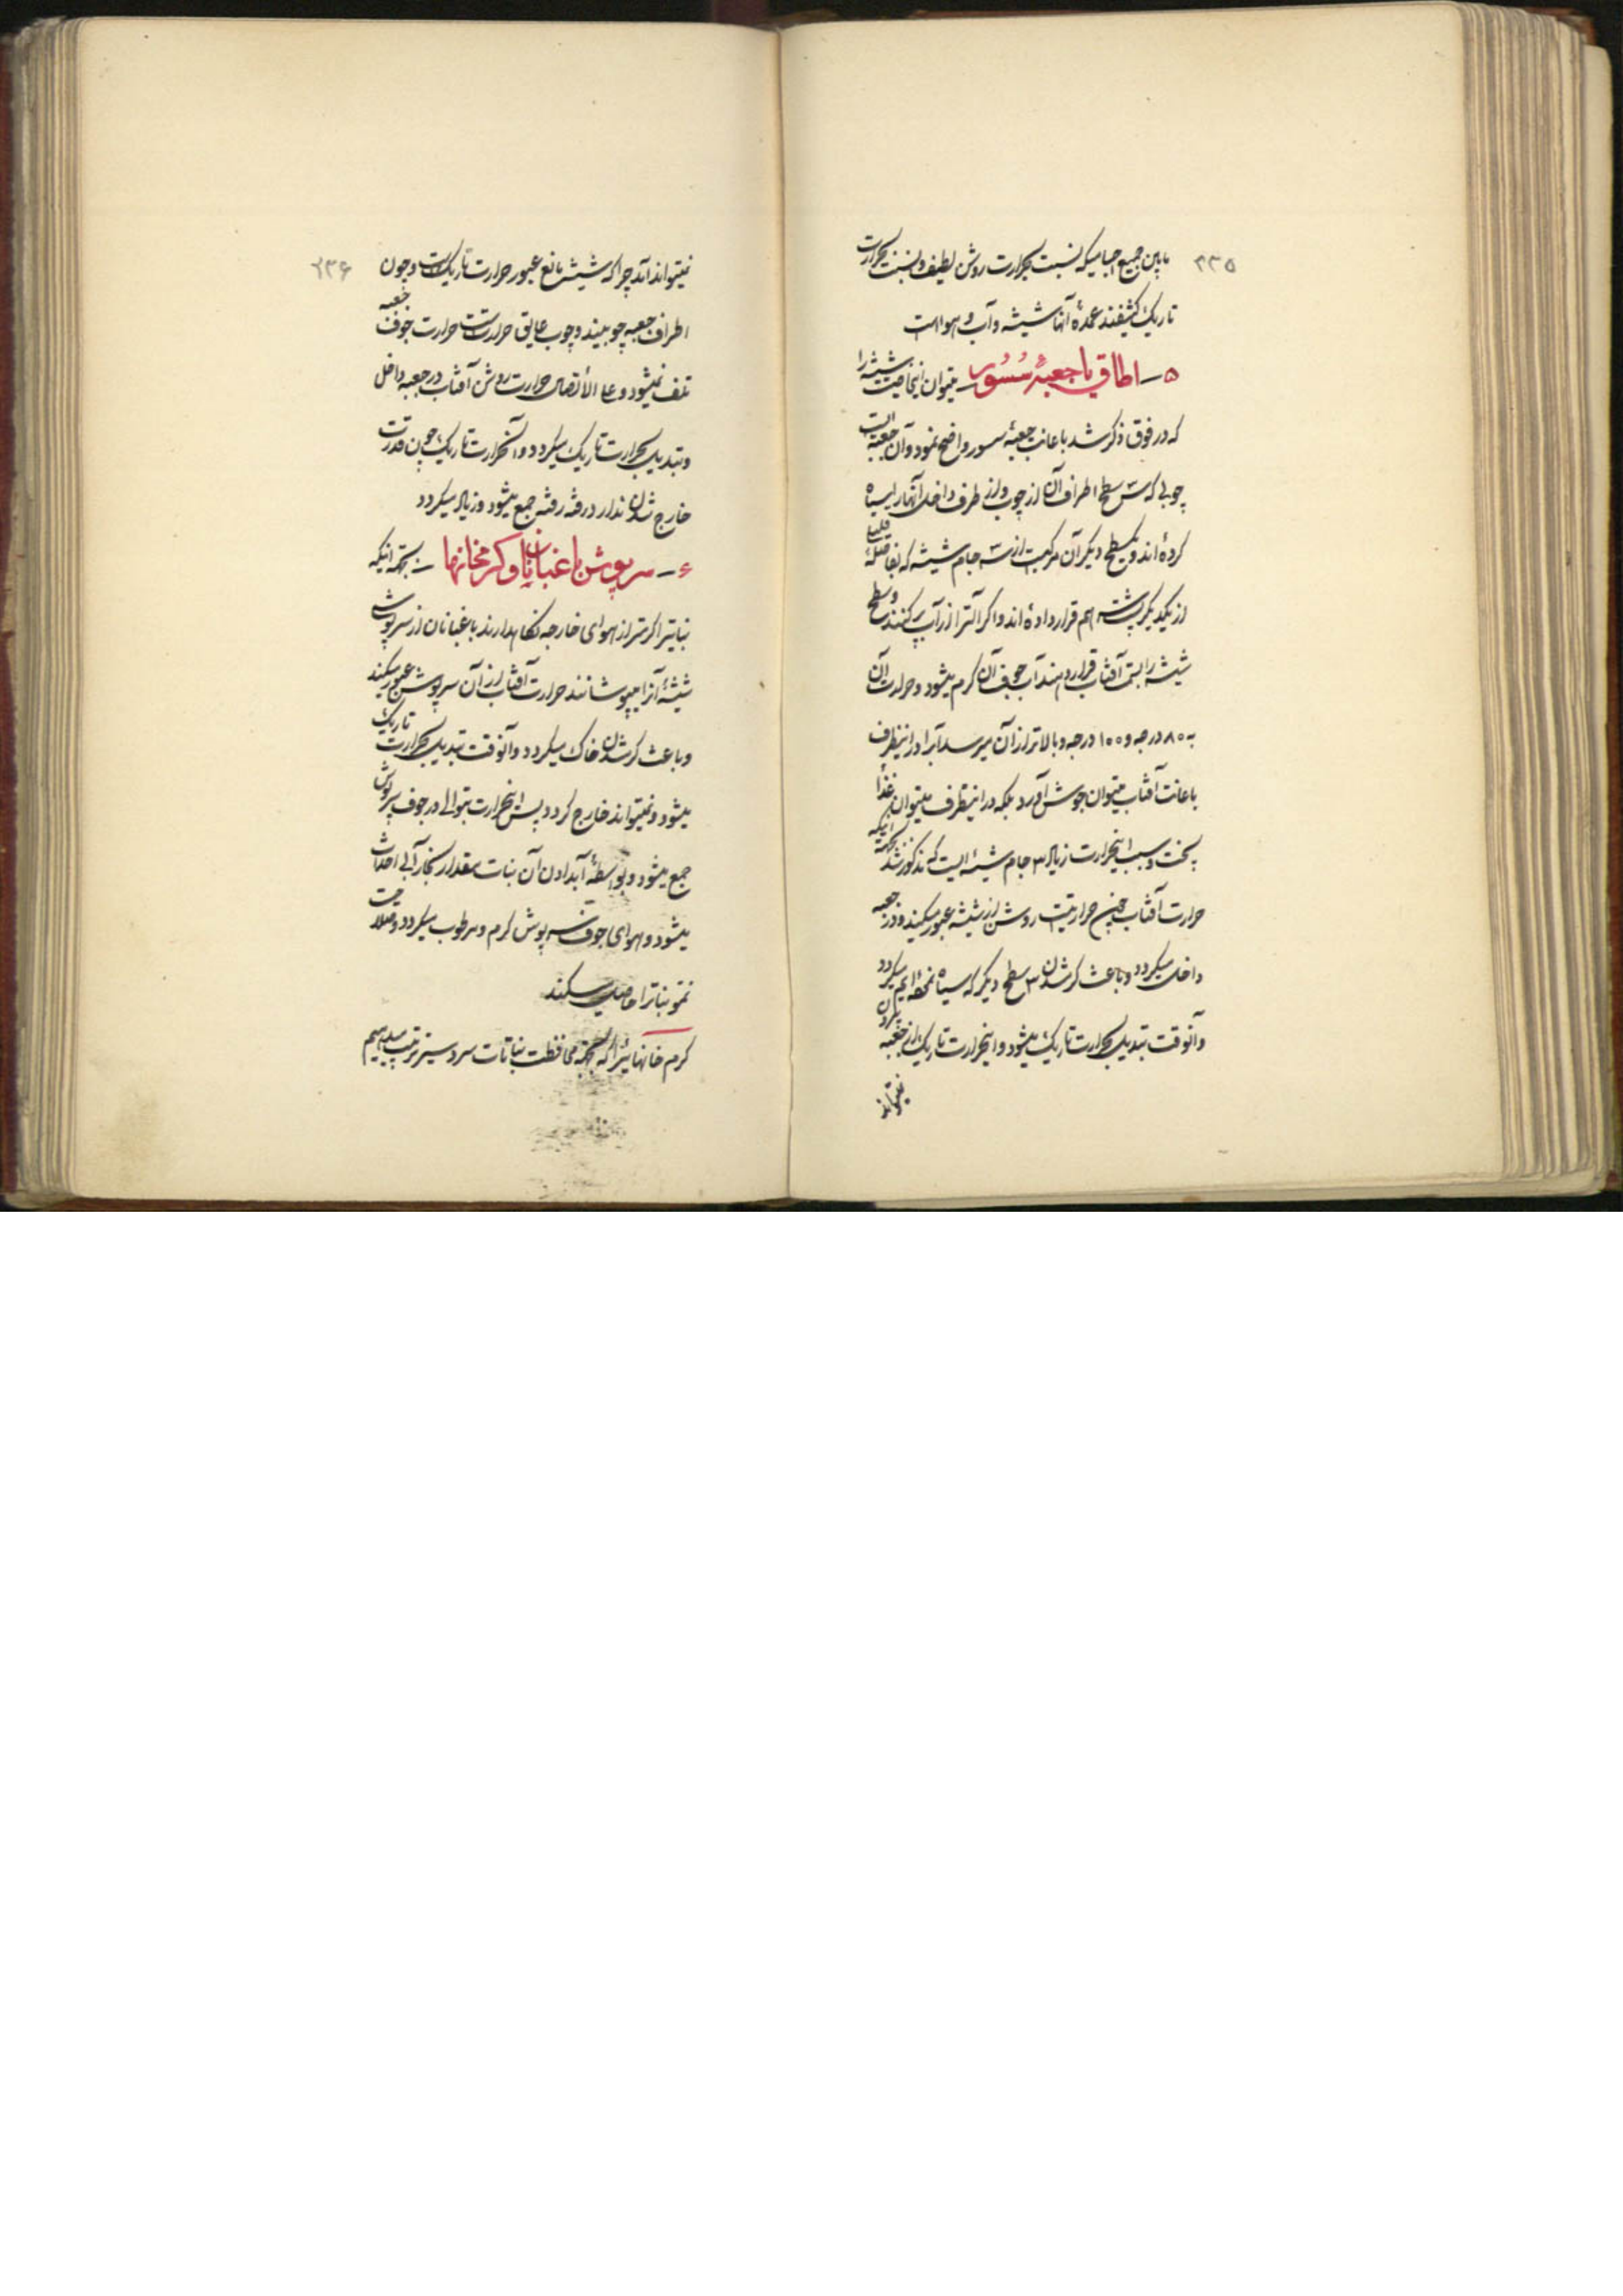 ۲۳۵
مابین جمیع اجسامیکه نسبت بحرارت روشن لطیف و نسبت بحرارت
تاریک کثیفند عمدهٔ آنها شیشه و آب و هوا است
۵ ــ اطاق یا جعبهٔ سُسُور ــ میتوان اینخاصیت شیشه را
که در فوق ذکر شد باعانت جعبهٔ سسور واضح نمود و آن جعبه ایست
چوبی که شش سطح اطراف آن از چوب و از طرف داخل آنها را سیاه
کرده‌اند و یکسطح دیگر آن مرکبست از سه جام شیشه که بفاصلهٔ قلیل
از یکدیگر پشت هم قرار داده‌اند و اگر آنرا از آب پر کنند و سطح
شیشه را بسمت آفتاب قرار دهند آب جوف آن گرم میشود و حرارت آن
به ۸۰ درجه و ۱۰۰ درجه و بالاتر از آن میرسد آبرا در اینظرف
باعانت آفتاب میتوان جوش آورد بلکه در اینظرف میتوان غذا
پخت و سبب اینحرارت زیاد ۳ جام شیشهٔ ایست که مذکور شد بجهة اینکه
حرارت آفتاب چون حرارتیست روشن از شیشه عبور میکند و در جعبه
داخل میگردد و باعث گرم شدن ۳ سطح دیگر که سیاه نموده‌ایم میگردد
وآنوقت تبدیل بحرارت تاریک میشود و اینحرارت تاریک از جعبه بیرون
نمیتواند
۲۳۶
نمیتواند آمد چرا که شیشه مانع عبور حرارت تاریک است و چون
اطراف جعبه چوبیند و چوب عایق حرارتست حرارت جوف جعبه
تلف نمیشود و علی الأتصال حرارت روشن آفتاب در جعبه داخل
و تبدیل بحرارت تاریک میگردد و آنحرارت تاریک چون قدرت
خارج شدن ندارد رفته رفته جمع میشود و زیاد میگردد
۶ ــ سرپوش باغبانان و گرمخانها ــ بجهة اینکه
نباتیرا گرمتر از هوای خارجه نگاهدارند باغبانان از سرپوش
شیشهٔ آنرا میپوشانند حرارت آفتاب از آن سرپوش عبور میکند
و باعث گرم شدن خاک میگردد و آنوقت تبدیل بحرارت تاریک
میشود و نمیتواند خارج گردد پس اینحرارت بتوالی در جوف سرپوش
جمع میشود و بواسطهٔ آبدادن آن نبات مقدار بخار آبی احداث
میشود و هوای جوف سرپوش گرم و مرطوب میگردد و صلاحیت
نمو نباترا حاصل میکند
گرم خانهائیرا که بجهة محافظت نباتات سردسیر ترتیب میدهیم